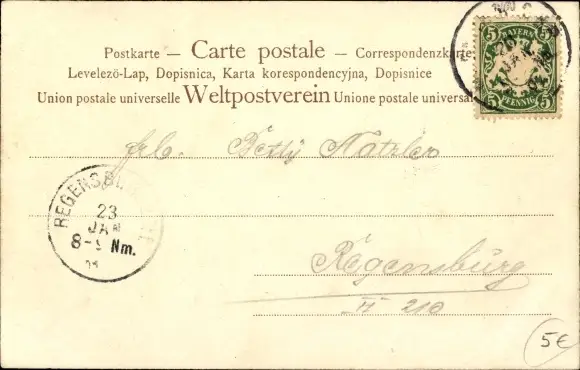 Postkarte — Carte postale — Correspondenzkarte
Levelezö-Lap, Dopisnica, Karta korespondencyjna, Dopisnice
Union postale universelle Weltpostverein Unione postale universal
BAYERN
5 5
5 5
PFENNIG
Frl. Betty Natzler
REGENSBURG
23
JAN
8-9 Nm.
Regensburg
H 210
5€